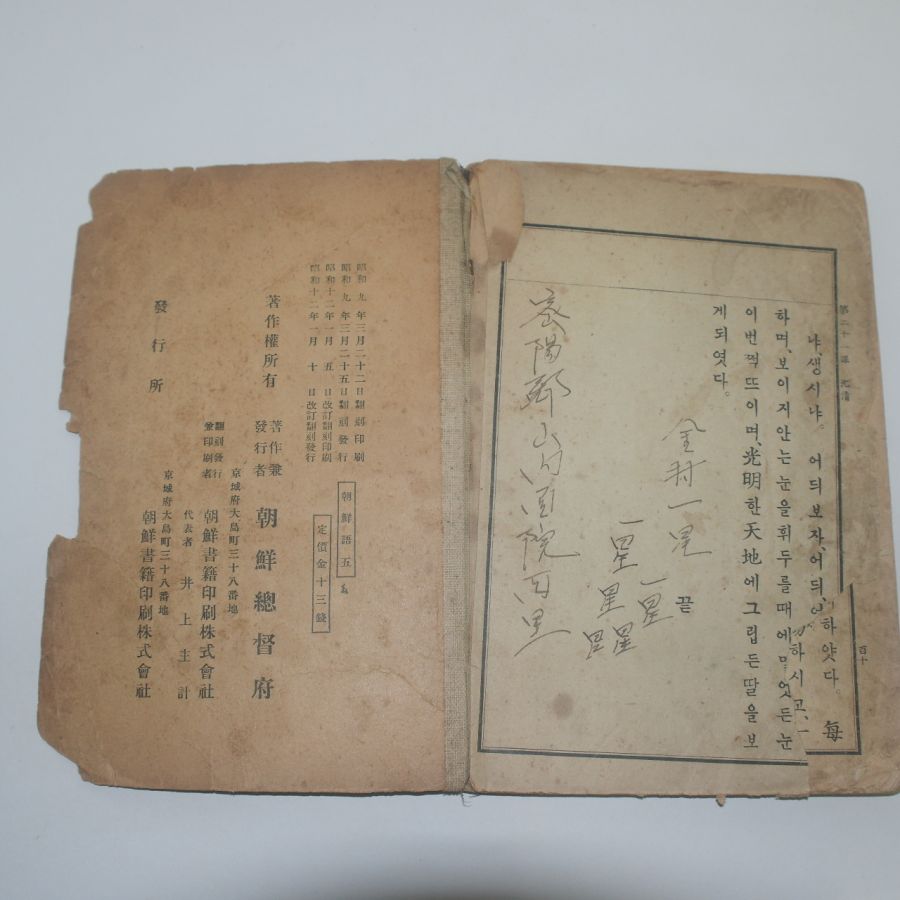 第二十一課
百十
냐, 생시냐。 어듸보자, 어듸,
하얏다。 每
하며, 보이지안는눈을휘두를때에
엇든눈
하시고,
이번쩍뜨이며, 光明한天地에그립든딸을보
게되엿다。
끝
金村一星
一星
一星
星
星
星
密陽郡山內面院西里
昭和九年三月二十二日翻刻印刷
昭和九年三月二十五日翻刻發行
昭和十二年一月五日改訂翻刻印刷
昭和十二年一月十日改訂翻刻發行
朝鮮語五
定價金十三錢
著作權所有
著作兼發行者 朝鮮總督府
京城府大島町三十八番地
翻刻發行兼印刷者 朝鮮書籍印刷株式會社
代表者 井上主計
京城府大島町三十八番地
發行所 朝鮮書籍印刷株式會社